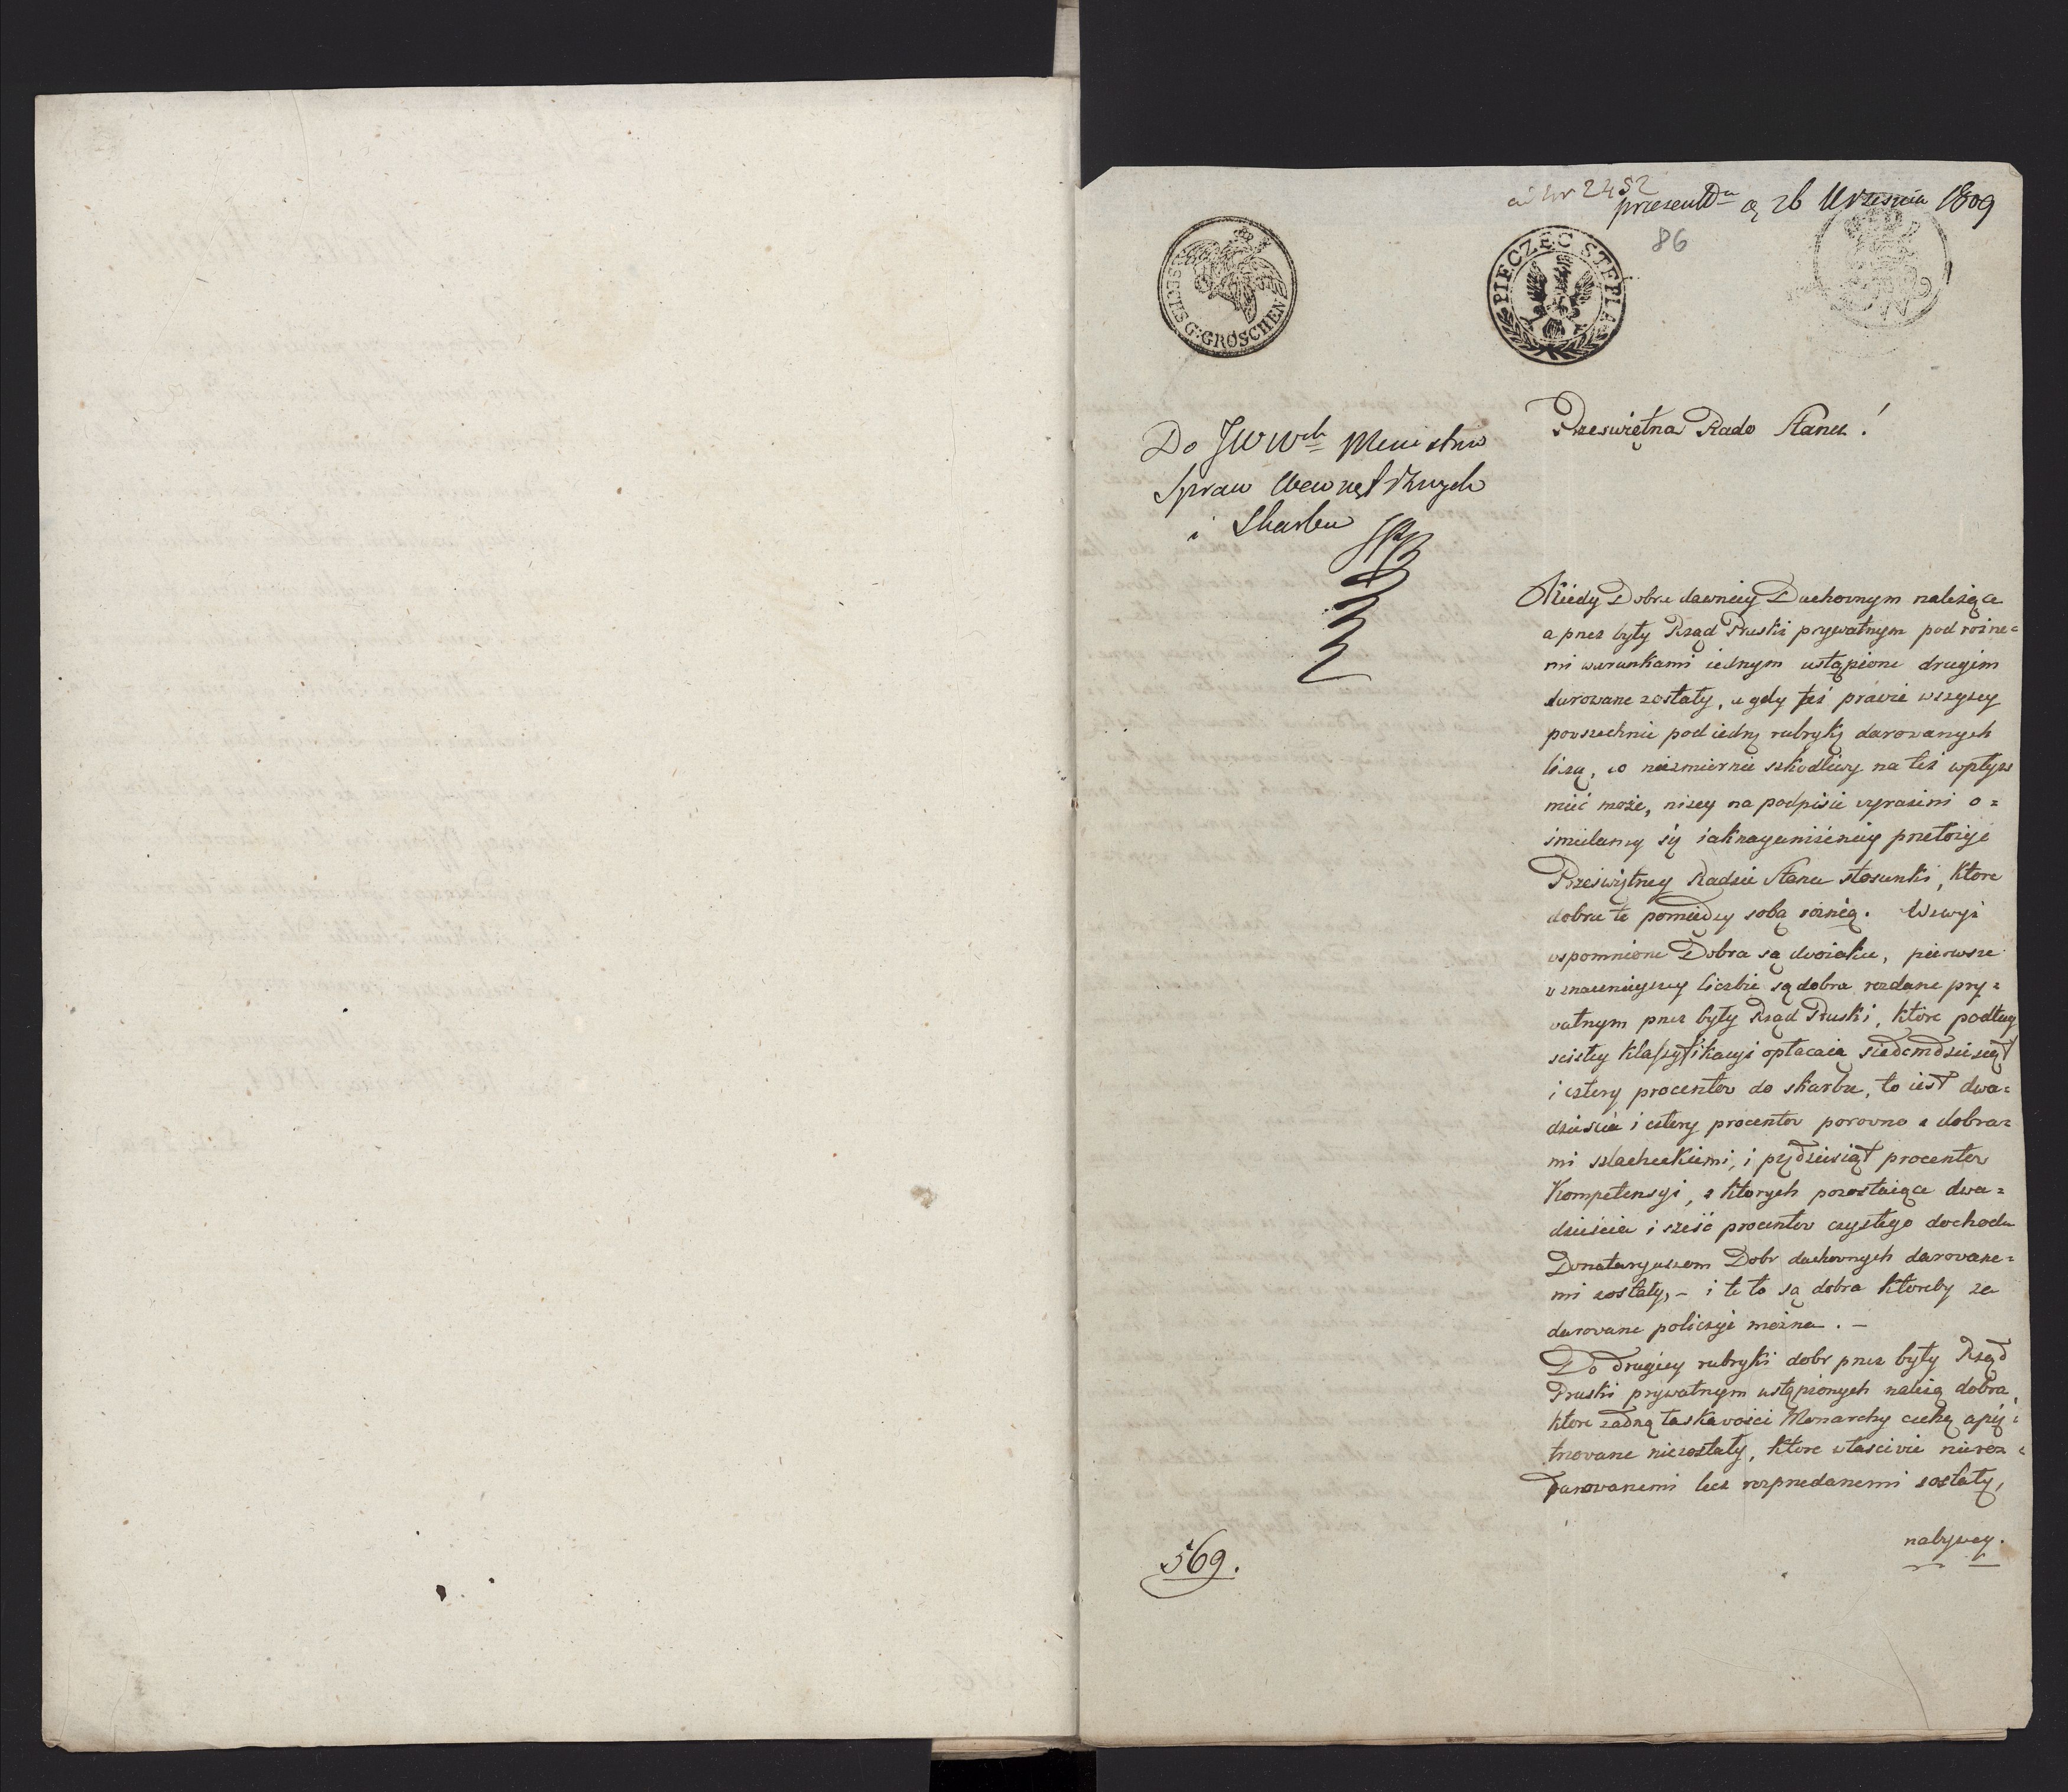 ad Nr 2452
praesentt Da 26 Września 1809
86
SECHS G: GROSCHEN
PIECZĘC STEPLA
Do JWWch Ministrow
Spraw Wewnętrznych
i Skarbu
Przeswiętna Rado Stanu!
Kiedy Dobra dawniey Duchownym należące
a przez były Rząd Pruski prywatnym pod rożne=
mi warunkami iednym ustąpione drugim
darowane zostały, a gdy też prawie wszyscy
powszechnie pod iedną rubryką darowanych
liczą, co niezmiernie szkodliwy na też wpływ
mieć może, niżey na podpisie wyrażeni o=
śmielamy się iaknayuniżeniey przełożyć
Przeświętney Radzie Stanu stosunki, ktore
dobra te pomiędzy sobą rożnią. Wzwyż
wspomnione Dobra są dwoiakie, pierwsze
w znacznieyszey liczbie są dobra rozdane pry=
watnym przez były Rząd Pruski, ktore podług
scisłey klassyfikacyi opłacaią siedemdziesiąt
i cztery procentow do skarbu, to iest dwa=
dzieścia i cztery procentow porowno z dobra=
mi szlacheckiemi, i pędziesiąt procentow
Kompetencyi, z ktorych pozostaiące dwa=
dzieścia i sześć procentow czystego dochodu
Donataryuszom Dobr duchownych darowane=
mi zostały, – i te to są dobra ktoreby za
darowane policzyć można. –
Do drugiey rubryki dobr przez były Rząd
Pruski prywatnym ustąpionych należą dobra,
ktore żadną łaskawości Monarchy cechą opię=
trzowane niezostały, ktore właściwie nieroz=
darowanemi lecz rozprzedanemi zostały,
nabywcy.
569.